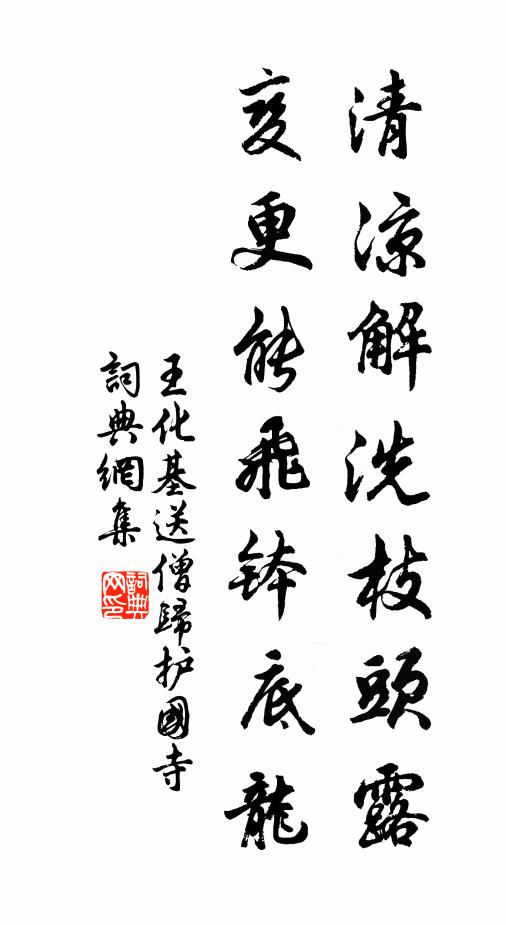 清涼解洗枝頭露
变更能飛钵底龍
王化基送僧歸护國寺
詞典網集
詞典網印